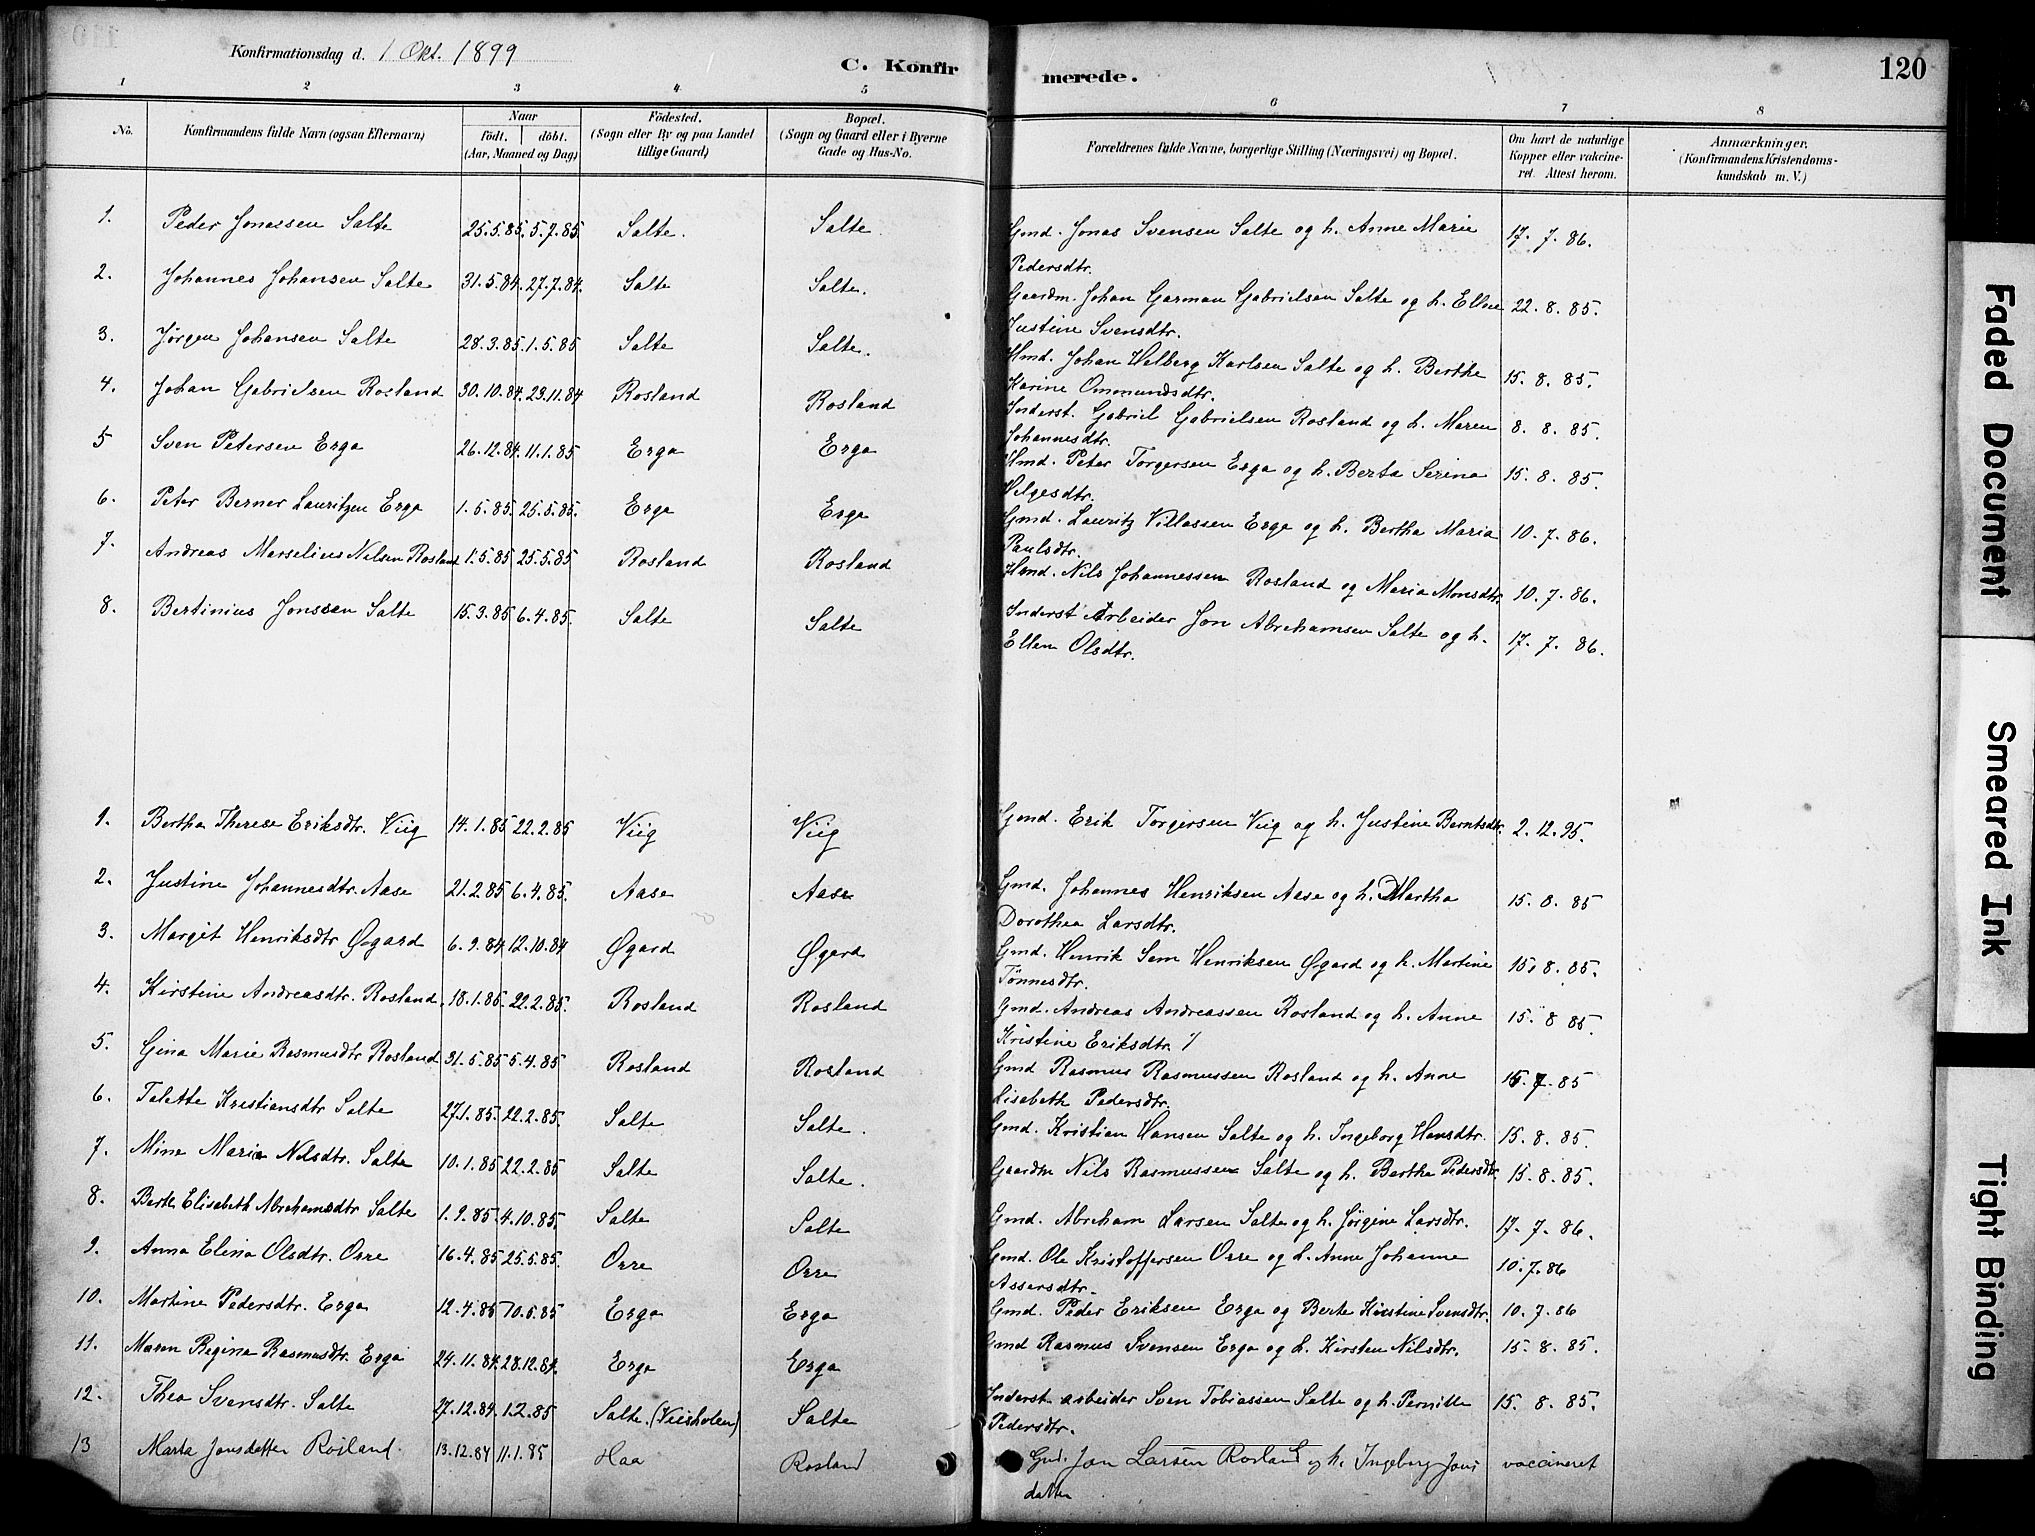 Konfirmationsdag d. 1 Okt. 1899
C. Konfirmerede.
120
1 2 3 4 5 6 7 8
No. Konfirmandens fulde Navn (ogsaa Efternavn) Naar Födt. döbt. (Aar, Maaned og Dag) Födested. (Sogn eller By og paa Landet tillige Gaard) Bopæl. (Sogn og Gaard eller i Byerne Gade og Hus-No. Forældrenes fulde Navne, borgerlige Stilling (Næringsvei) og Bopæl. Om havt de naturlige Kopper eller vakcineret. Attest herom. Anmærkninger. (Konfirmandens Kristendomskundskab m. V.)
1. Peder Jonassen Salte 25.5.85. 5.7.85. Salte. Salte Gmd. Jonas Svensen Salte og h. Anne Marie 17. 7. 86.
Pedersdtr.
2. Johannes Johansen Salte 31.5.84. 27.7.84. Salte Salte. Gaardm. Johan Garman Gabrielsen Salte og h. Elene 22. 8. 85.
Justine Svensdtr.
3. Jørgen Johansen Salte 28.3.85. 1.5.85 Salte Salte. Hmd. Johan Welberg Karlsen Salte og h. Berthe 15. 8. 85.
Karine Ommundsdtr.
4. Johan Gabrielsen Rosland 30.10.84. 23.11.84 Rosland Rosland Inderst. Gabriel Gabrielsen Rosland og h. Maren 8. 8. 85.
Johannesdtr.
5 Sven Petersen Erga 26.12.84. 11.1.85 Erga Erga Hmd. Peter Torgersen Erga og h. Berta Serina 15. 8. 85.
Helgesdtr.
6. Peter Berner Lauritzen Erga 1.5.85. 25.5.85. Erga Erga Gmd. Lauritz Villassen Erga og h. Bertha Maria 10. 7. 86.
Paulsdtr.
7. Andreas Marselius Nilsen Rosland 1.5.85 25.5.85 Rosland Rosland Hmd. Nils Johannessen Rosland og Maria Monsdtr. 10. 7. 86.
8. Bertinius Jonssen Salte 15.3.85 6.4.85. Salte Salte Inderst Arbeider Jon Abrahamsen Salte og h. 17. 7. 86.
Ellen Olsdtr.
1. Bertha Therese Eriksdtr. Viig 14.1.85 22.2.85 Viig Viig Gmd. Erik Torgersen Viig og h. Justine Berntsdtr. 2. 12. 95.
2. Justine Johannesdtr. Aase 21.2.85 6.4.85. Aase Aase Gmd. Johannes Henriksen Aase og h. Martha 15. 8. 85
Dorothea Larsdtr.
3. Margit Henriksdtr Øgard 6.9.84 12.10.84 Øgard Øgard Gmd. Henrik Sem Henriksen Øgard og h. Martine 15. 8. 85.
Tönnesdtr.
4. Kirstine Andreasdtr. Rosland. 18.1.85. 22.2.85. Rosland Rosland Gmd. Andreas Andreassen Rosland og h. Anne 15. 8 85.
Kristine Eriksdtr.
5. Gina Marie Rasmusdtr Rosland 31.5.85 5.4.85 Rosland Rosland Gmd Rasmus Rasmussen Rosland og h. Anne 15. 7. 85
Lisabeth Pedersdtr.
6. Talette Kristiansdtr Salte 27.1.85. 22.2.85. Salte Salte. Gmd. Kristian Hansen Salte og h. Ingeborg Hansdtr. 15. 8. 85.
7. Mina Maria Nilsdtr. Salte 10.1.85 22.2.85 Salte Salte. Gaardm Nils Rasmussen Salte og h. Bertha Pedersdtr. 15. 8. 85.
8. Berte Elisabeth Abrahamsdtr Salte 1.9.85. 4.10.85. Salte Salte Gmd. Abraham Larsen Salte og h. Jørgine Larsdtr. 17. 7. 86.
9. Anna Elina Olsdtr. Orre 16.4.85 25.5.85. Orre Orre Gmd. Ole Kristoffersen Orre og h. Anne Johanne 10. 7. 86
Assersdtr.
10. Martine Pedersdtr. Erga 12.4.85 10.5.85 Erga Erga Gmd. Peder Eriksen Erga og Berte Kirstine Svensdtr. 10. 7. 86
11. Maren Regina Rasmusdtr. Erga 24.11.84. 28.12.84. Erga Erga Gmd Rasmus Svensen Erga og h. Kirsten Nilsdtr. 15. 8. 85.
12. Thea Svensdtr. Salte 27.12.84. 1.2.85 Salte. (Viisholen) Salte Inderst arbeider Sven Tobiassen Salte og h. Pernille 15. 8. 85.
Pedersdtr.
13 Marta Jonsdatter Rosland. 13.12.84 11.1.85 Haa Rosland Gmd. Jon Larsen Rosland og h. Ingeborg Jons vaccineret
datter
Faded Document
Smeared Ink
Tight Binding